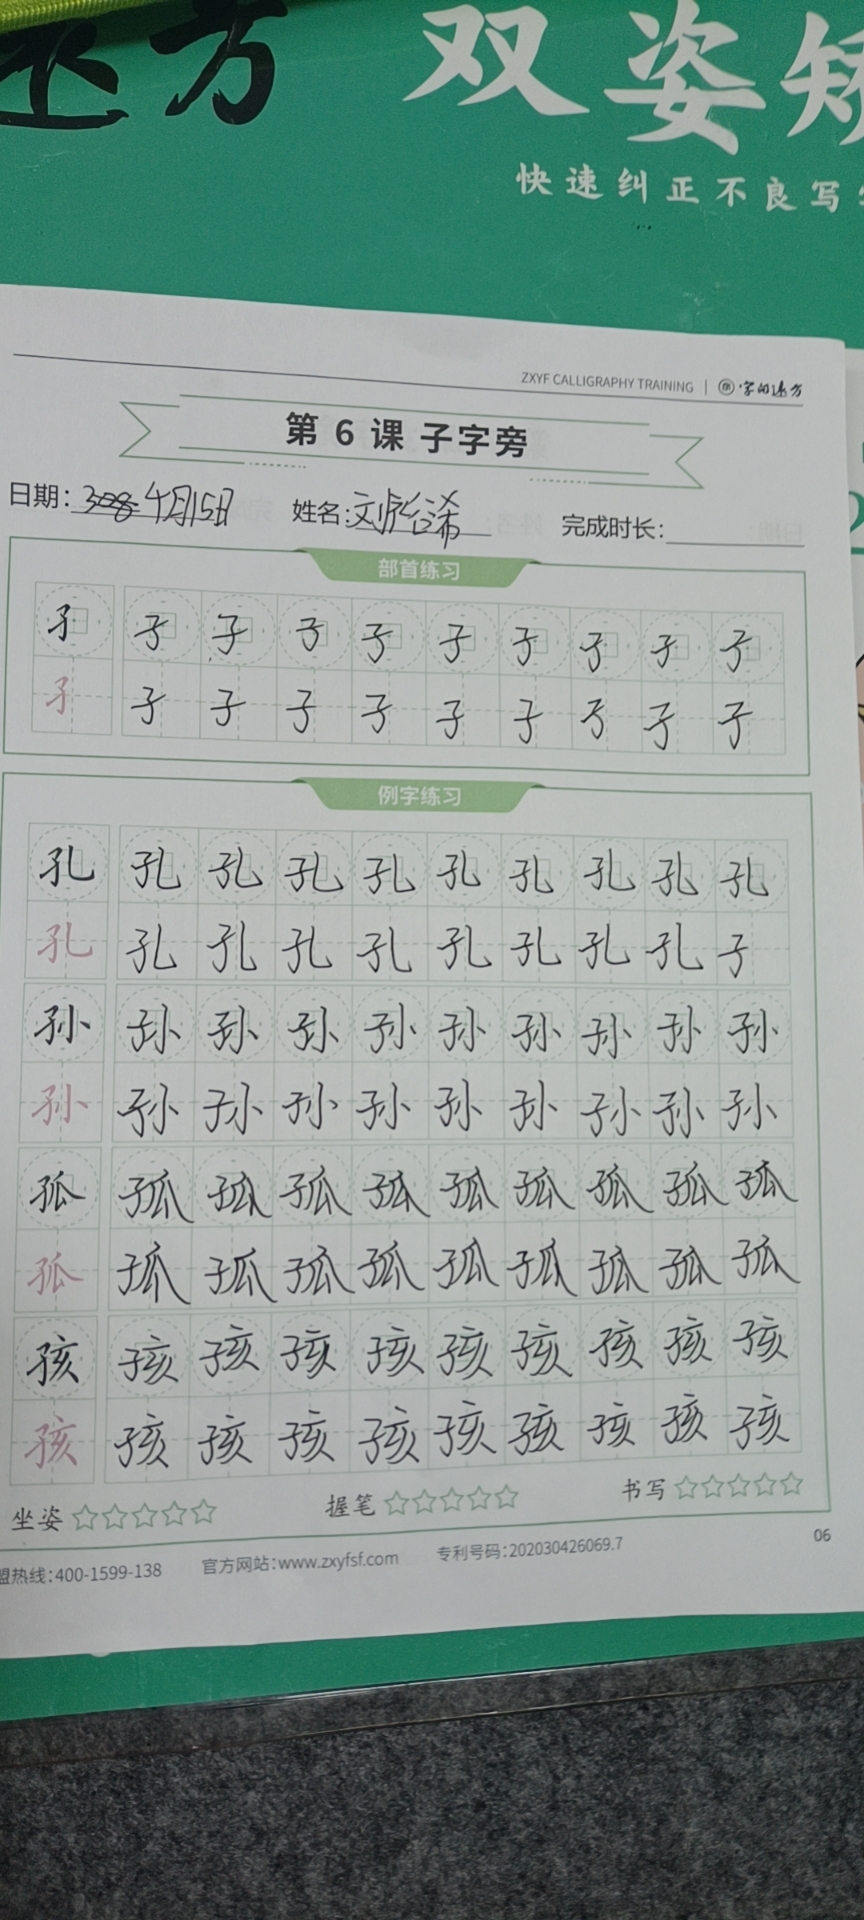 远方
双姿矫
快速纠正不良写字
ZXYF CALLIGRAPHY TRAINING | 字的远方
第 6 课 子字旁
日期: 4月15日 姓名: 刘 浠 完成时长:
部首练习
子 子 子 子 子 子 子 子 子 子
子 子 子 子 子 子 子 子 子 子
例字练习
孔 孔 孔 孔 孔 孔 孔 孔 孔 孔
孔 孔 孔 孔 孔 孔 孔 孔 孔 子
孙 孙 孙 孙 孙 孙 孙 孙 孙 孙
孙 孙 孙 孙 孙 孙 孙 孙 孙 孙
孤 孤 孤 孤 孤 孤 孤 孤 孤 孤
孤 孤 孤 孤 孤 孤 孤 孤 孤 孤
孩 孩 孩 孩 孩 孩 孩 孩 孩 孩
孩 孩 孩 孩 孩 孩 孩 孩 孩 孩
坐姿 ☆☆☆☆☆ 握笔 ☆☆☆☆☆ 书写 ☆☆☆☆☆
盟热线:400-1599-138 官方网站:www.zxyfsf.com 专利号码:202030426069.7 06